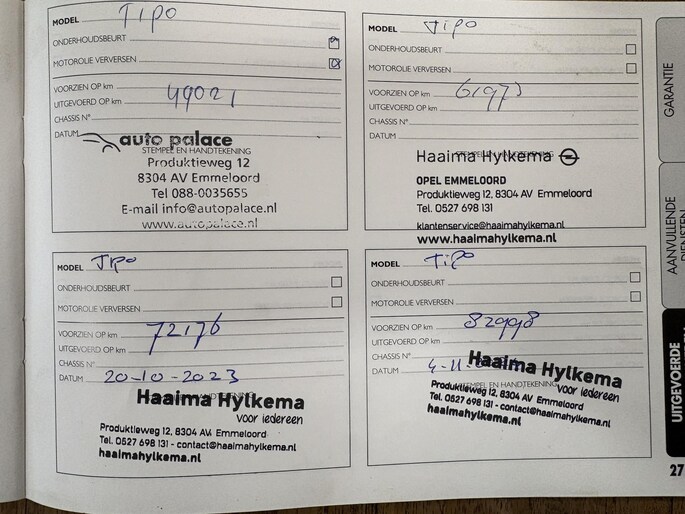 MODEL Tipo
ONDERHOUDSBEURT
MOTOROLIE VERVERSEN
VOORZIEN OP km
UITGEVOERD OP km 49021
CHASSIS N°
DATUM
auto palace
STEMPEL EN HANDTEKENING
Produktieweg 12
8304 AV Emmeloord
Tel 088-0035655
E-mail info@autopalace.nl
www.autopalace.nl
MODEL Tipo
ONDERHOUDSBEURT
MOTOROLIE VERVERSEN
VOORZIEN OP km
UITGEVOERD OP km 61973
CHASSIS N°
DATUM
Haaima Hylkema
STEMPEL EN HANDTEKENING
OPEL EMMELOORD
Produktieweg 12, 8304 AV Emmeloord
Tel. 0527 698 131
klantenservice@haaimahylkema.nl
www.haaimahylkema.nl
MODEL Tipo
ONDERHOUDSBEURT
MOTOROLIE VERVERSEN
VOORZIEN OP km 72176
UITGEVOERD OP km
CHASSIS N°
DATUM 20-10-2023
Haaima Hylkema
voor iedereen
Produktieweg 12, 8304 AV Emmeloord
Tel. 0527 698 131 - contact@haaimahylkema.nl
haaimahylkema.nl
MODEL Tipo
ONDERHOUDSBEURT
MOTOROLIE VERVERSEN
VOORZIEN OP km 82998
UITGEVOERD OP km
CHASSIS N°
DATUM 4-11-
Haaima Hylkema
STEMPEL EN HANDTEKENING
voor iedereen
Produktieweg 12, 8304 AV Emmeloord
Tel. 0527 698 131 - contact@haaimahylkema.nl
haaimahylkema.nl
GARANTIE
AANVULLENDE
DIENSTEN
UITGEVOERDE
27